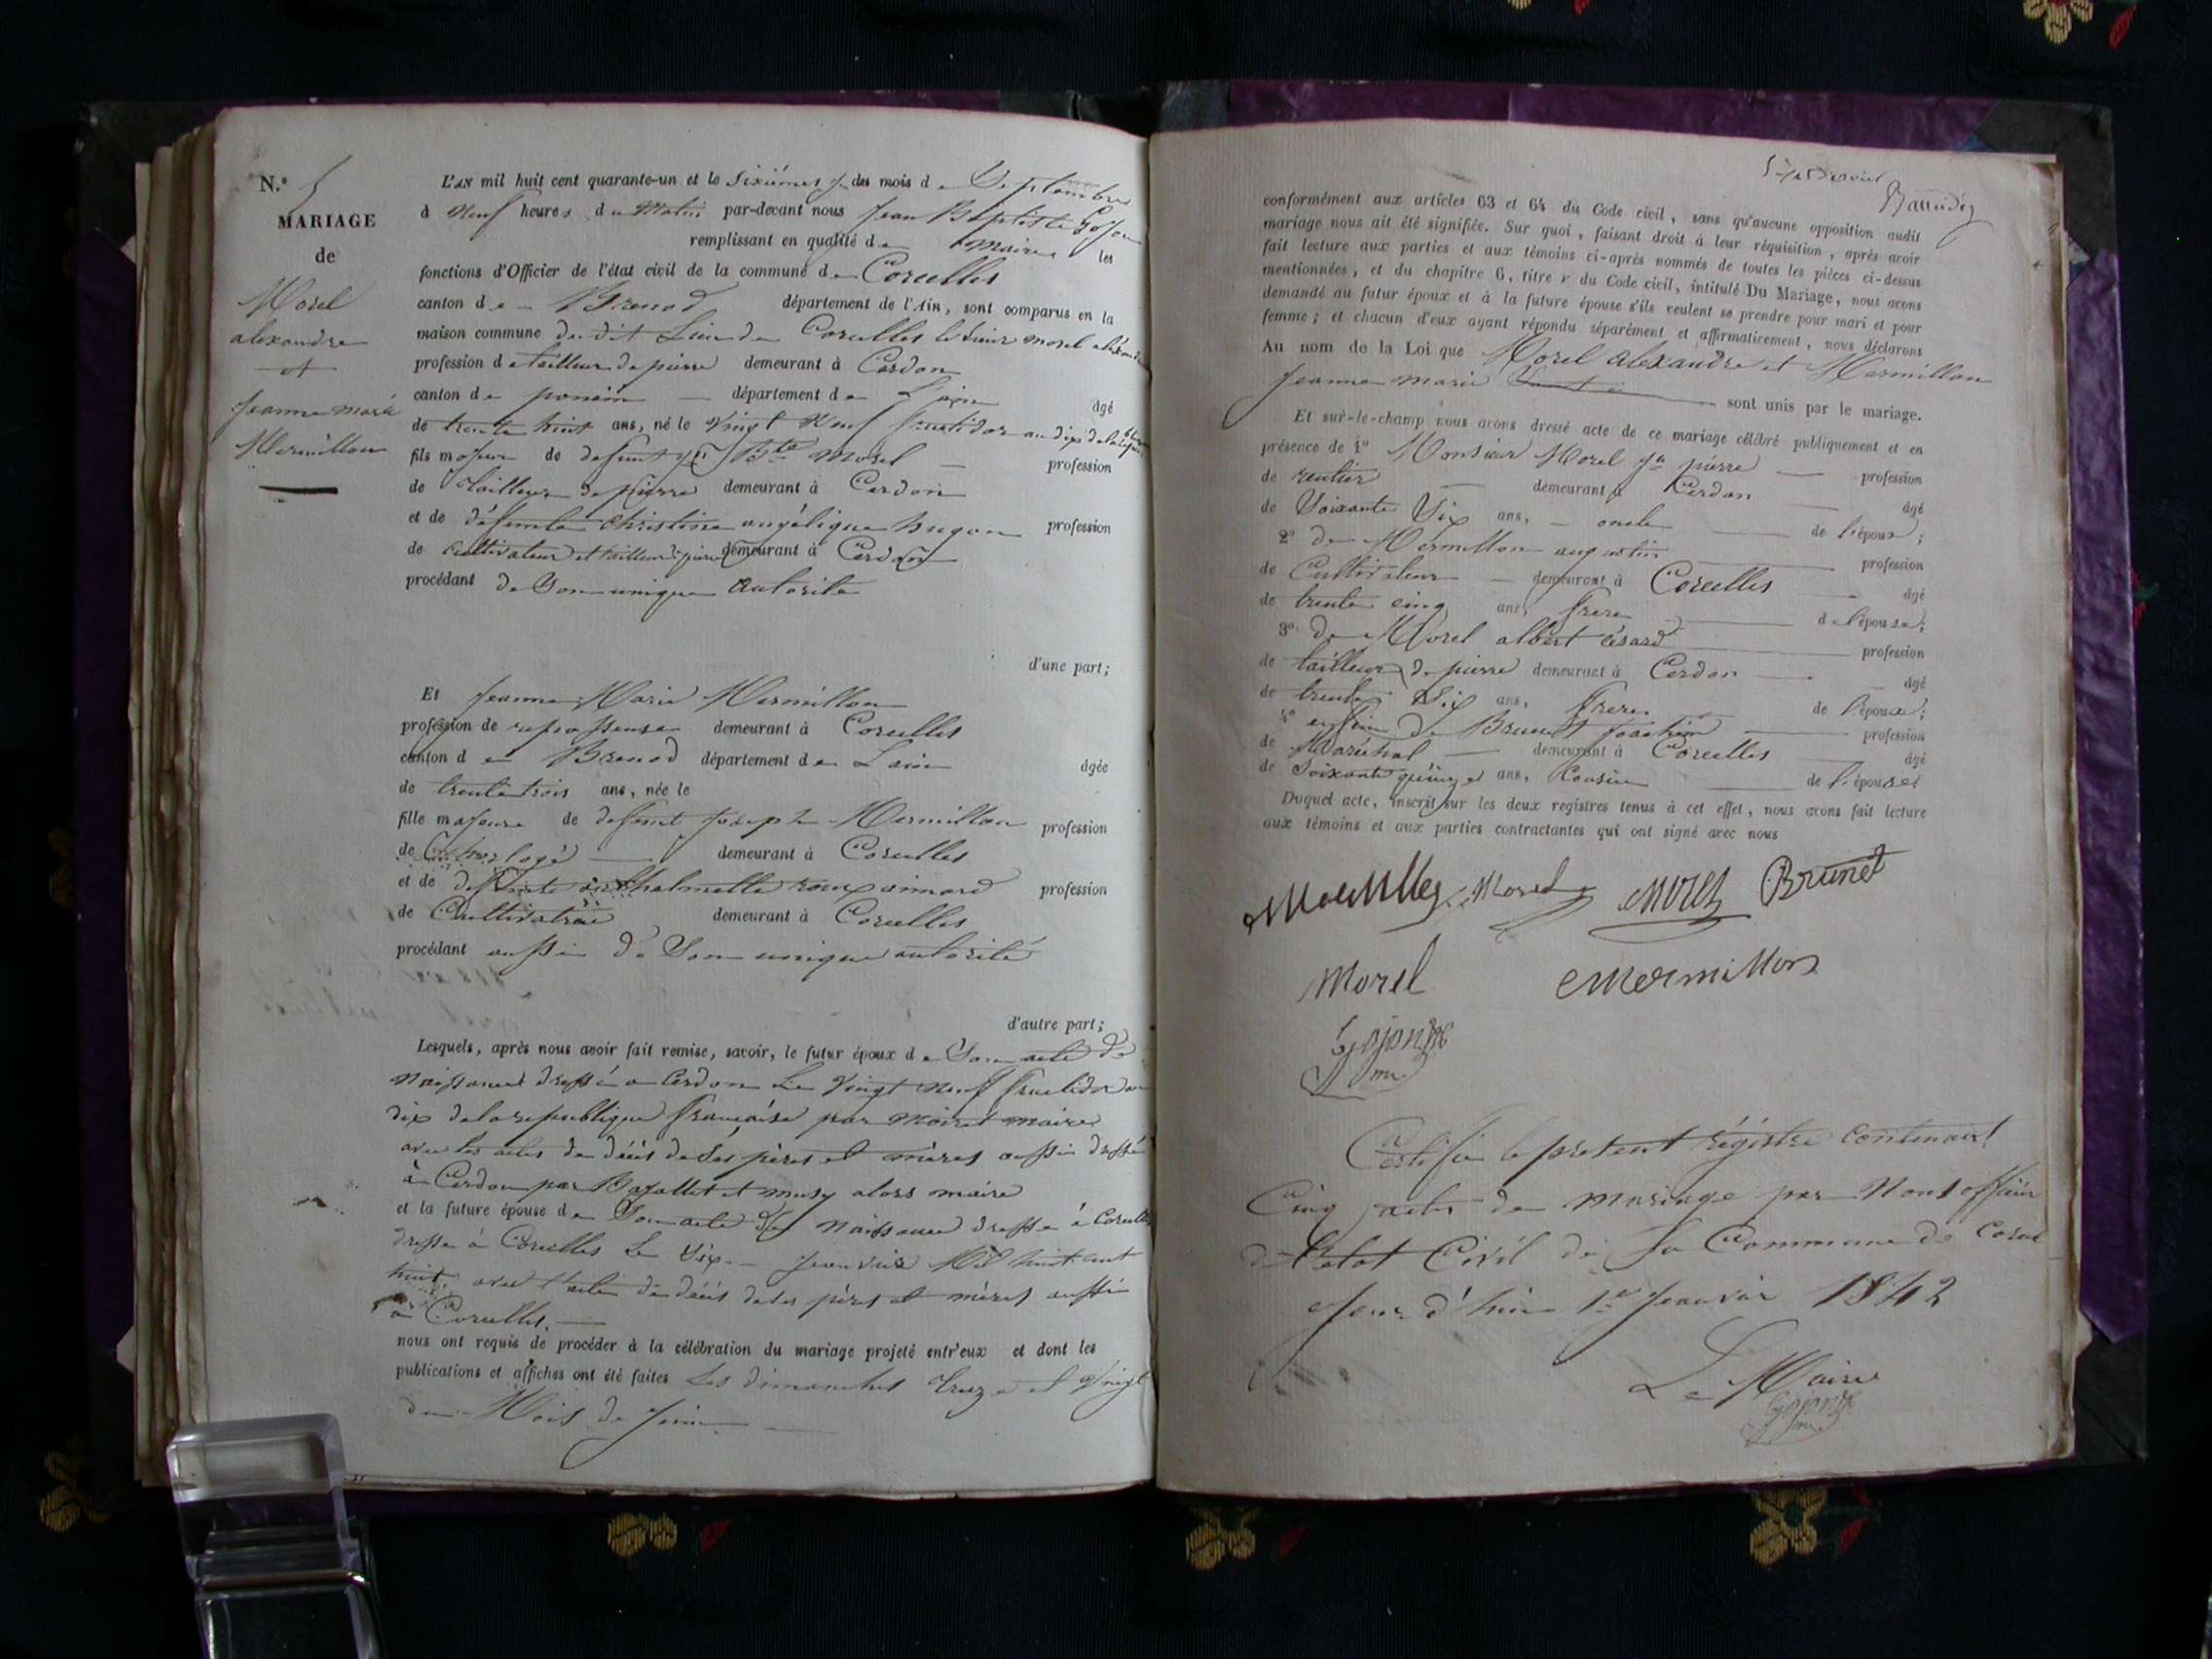 N.° 5
MARIAGE
de
Morel
alexandre
et
Jeanne marie
Mermillon
L'AN mil huit cent quarante-un et le sixième jr des mois de Septembre
à neuf heures du matin par-devant nous Jean Baptiste
remplissant en qualité de maire les
fonctions d'Officier de l'état civil de la commune de Corcelles
canton de Brenod département de l'Ain, sont comparus en la
maison commune du dit Lieu de Corcelles le sieur morel alexandre
profession de tailleur de pierre demeurant à Cerdon
canton de poncin département de L'ain âgé
de trente huit ans, né le vingt neuf fructidor an dix de la
fils majeur de defunt Bte Morel profession
de tailleur de pierre demeurant à Cerdon
et de défunte christine angélique hugon profession
de cultivateur et tailleur de pierre demeurant à Cerdon
procédant de Son unique autorité
d'une part;
Et Jeanne Marie Mermillon
profession de repasseuse demeurant à Corcelles
canton de Brenod département de Lain âgée
de trente trois ans, née le
fille majeure de defunt Joseph Mermillon profession
de horlogé demeurant à Corcelles
et de defunte profession
de Cultivatrice demeurant à Corcelles
procédant aussi de Son unique autorité
d'autre part;
Lesquels, après nous avoir fait remise, savoir, le futur époux de Son acte de
Naissance dressé a Cerdon Le vingt neuf fructidor an
dix de la republique française par maire
avec les actes de décés de ses pères et mères aussi dressé
à Cerdon par et musy alors maire
et la future épouse de Son acte de naissance dressé à Corcelles
dressé à Corcelles Le Six Janvier Mil huit cent
huit, avec l'acte de décés de ses pères et mères aussi
à Corcelles.
nous ont requis de procéder à la célébration du mariage projeté entr'eux et dont les
publications et affiches ont été faites Les dimanches treize et vingt
du Mois de Juin
conformément aux articles 63 et 64 du Code civil, sans qu'aucune opposition audit
mariage nous ait été signifiée. Sur quoi, faisant droit à leur réquisition, après avoir
fait lecture aux parties et aux témoins ci-après nommés de toutes les pièces ci-dessus
mentionnées, et du chapitre 6, titre v du Code civil, intitulé Du Mariage, nous avons
demandé au futur époux et à la future épouse s'ils veulent se prendre pour mari et pour
femme; et chacun d'eux ayant répondu séparément et affirmativement, nous déclarons
Au nom de la Loi que Morel alexandre et Mermillon
Jeanne marie sont unis par le mariage.
Et sur-le-champ nous avons dressé acte de ce mariage célébré publiquement et en
présence de 1° Monsieur Morel Jn pierre profession
de rentier demeurant à Cerdon âgé
de Soixante Six ans, oncle de l'époux;
2° de Mermillon augustin profession
de Cultivateur demeurant à Corcelles âgé
de trente cinq ans, frere de l'épouse;
3° de Morel albert césard profession
de tailleur de pierre demeurant à Cerdon âgé
de trente Six ans, frere de l'époux;
4° enfin de Brunet profession
de Maréchal demeurant à Corcelles âgé
de Soixante quinze ans, Cousin de l'épouse
Duquel acte, inscrit sur les deux registres tenus à cet effet, nous avons fait lecture
aux témoins et aux parties contractantes qui ont signé avec nous
Morel morel Brunet
morel mermillon
Certifié le present régistre contenant
Cinq actes de mariage par Nous officier
de l'etat Civil de la Commune de Corcel
Jour d'hui 1er Janvier 1842
Le Maire